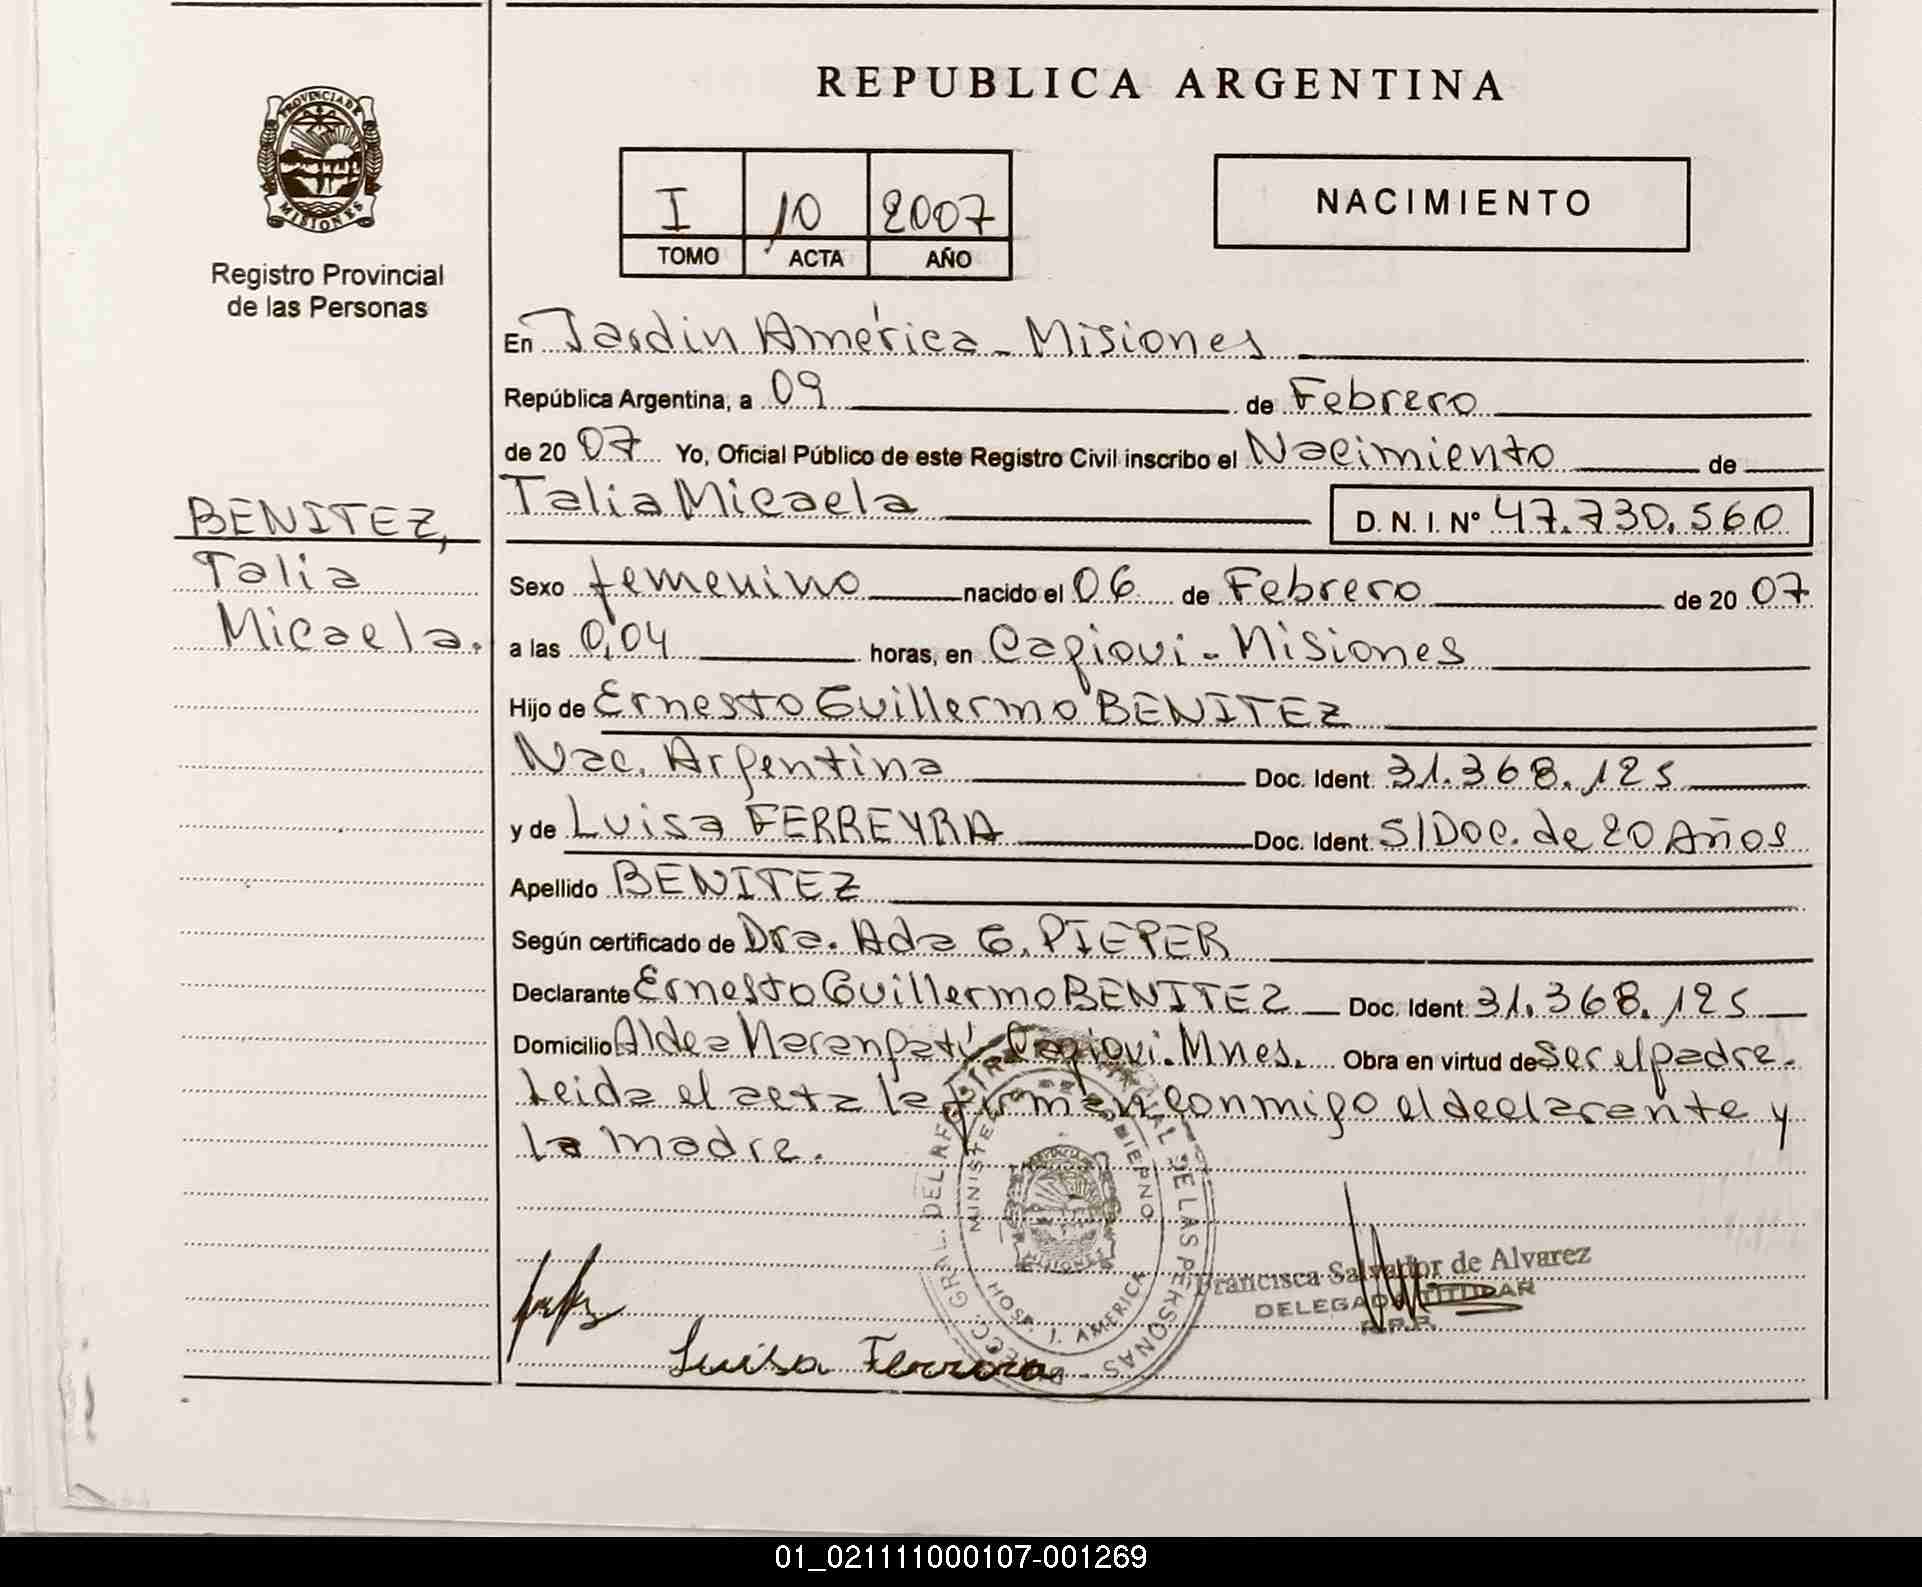 REPUBLICA ARGENTINA
PROVINCIA DE
MISIONES
Registro Provincial
de las Personas
I 10 2007
TOMO ACTA AÑO
NACIMIENTO
En Jardin América - Misiones
República Argentina, a 09 de Febrero
de 20 07 Yo, Oficial Público de este Registro Civil inscribo el Nacimiento de
Talia Micaela D. N. I. Nº 47.730.560
BENITEZ,
Talia
Micaela.
Sexo femenino nacido el 06 de Febrero de 20 07
a las 0,04 horas, en Capiovi - Misiones
Hijo de Ernesto Guillermo BENITEZ
Nac. Argentina Doc. Ident. 31.368.125
y de Luisa FERREYRA Doc. Ident. S/Doc. de 20 Años
Apellido BENITEZ
Según certificado de Dra. Ada G. PIEPER
Declarante Ernesto Guillermo BENITEZ Doc. Ident. 31.368.125
Domicilio Aldea Marangatú Capiovi. Mnes. Obra en virtud de Ser el padre.
Leida el acta la firman conmigo el declarante y
la madre.
DIRECC. GRAL. DEL REGISTRO PROVINCIAL DE LAS PERSONAS
HOSP. J. AMERICA
MISIONES
Francisca Salvador de Alvarez
DELEGADA TITULAR
R.P.P.
Luisa Ferreira
01_021111000107-001269